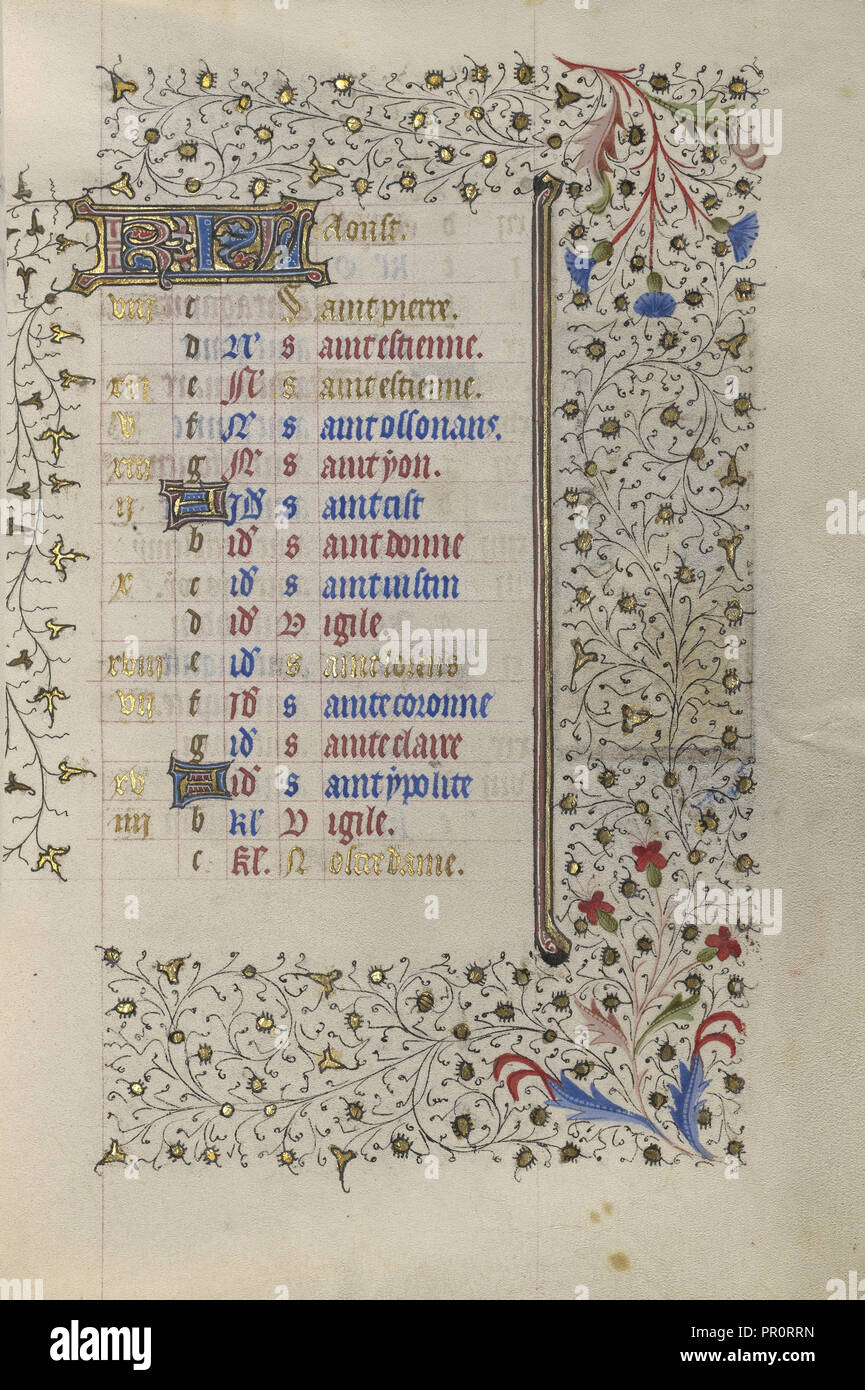 KL Aoust.
viii c Saint pierre.
d N Saint estienne.
xvi e N Saint estienne.
v f N Saint ossonans.
xiii g N Saint yon.
ii A id Saint cist
b id Saint donne
x c id Saint iustin
d id Vigile.
xviii e id Saint lorens
vii f id Sainte coronne
g id Sainte claire
xv A id Saint ypolite
iiii b kl Vigile.
c kl. Nostre dame.
alamy
Image ID: PR0RRN
www.alamy.com